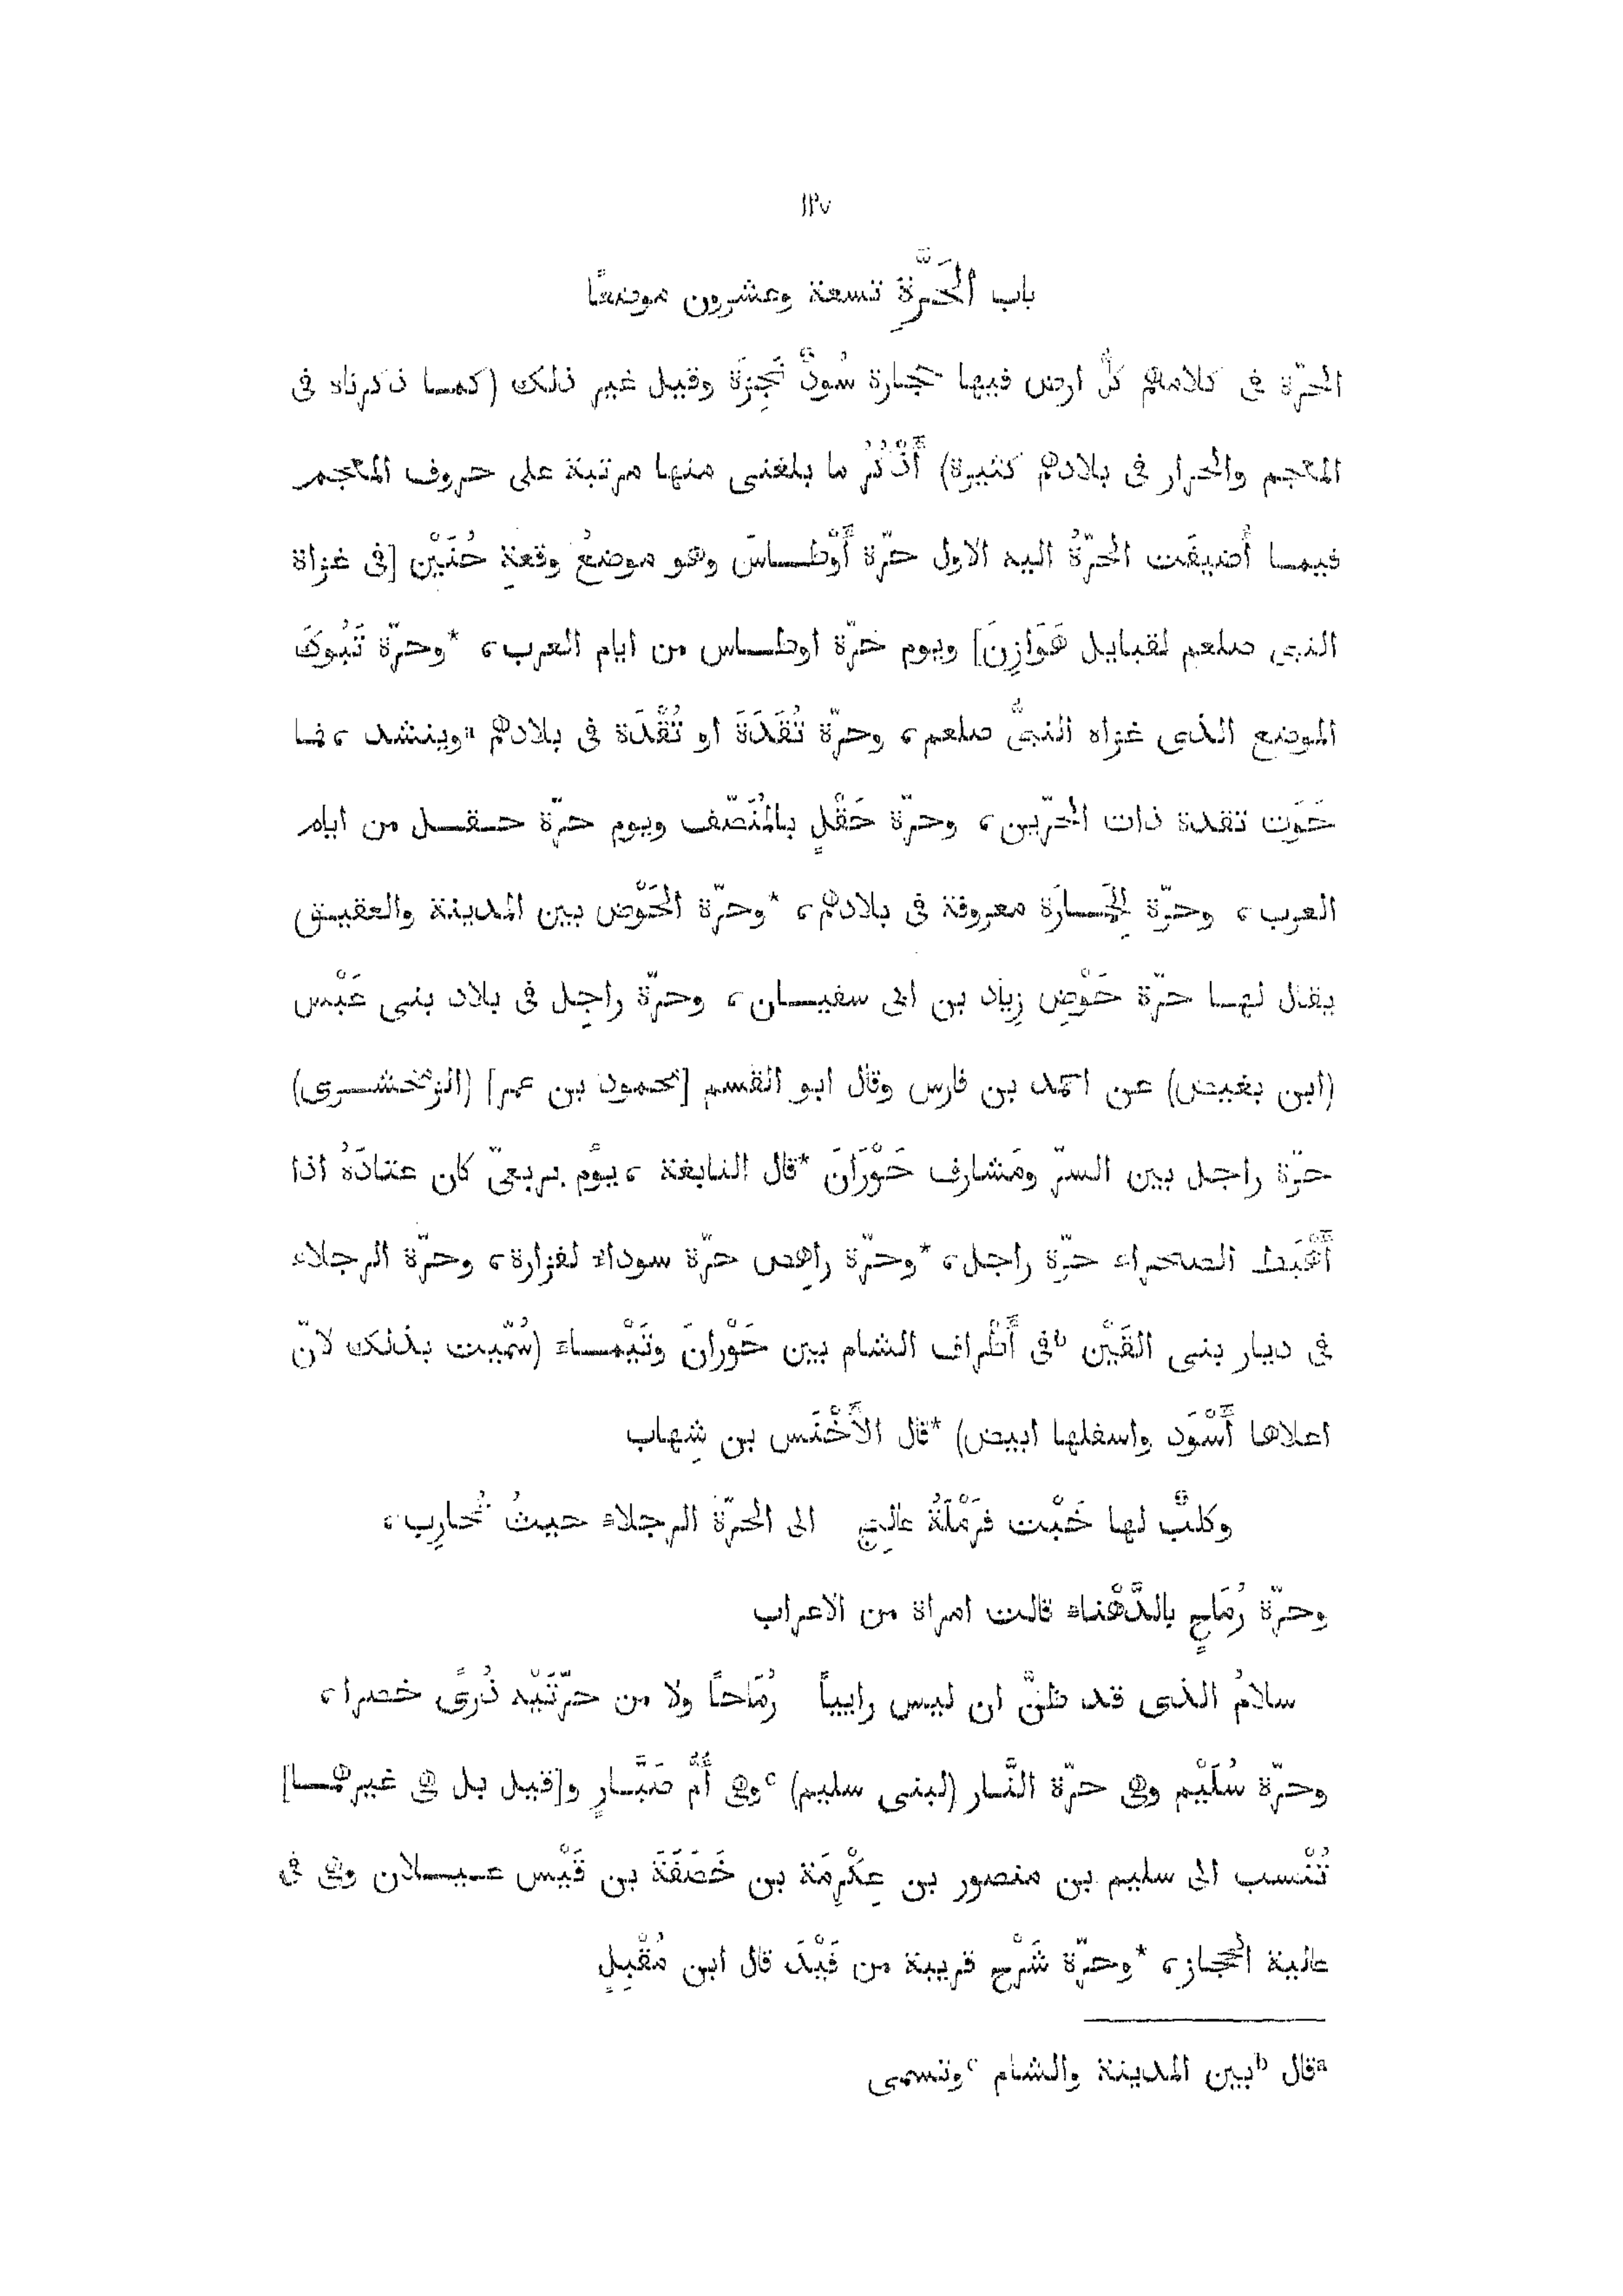 ١٢٧
باب الحَرَّةِ تسعة وعشرون موضعًا
الحرّة فى كلامهم كلُّ ارض فيها حجارة سُودٌ نَخِرَة وقيل غير ذلك (كما ذكرناه فى
المعجم والحرار فى بلادهم كثيرة) أَذْكُرُ ما بلغنى منها مرتبة على حروف المعجم
فيما أُضيفَت الحرّةُ اليه الاول حرّة أَوْطاسَ وهو موضعُ وقعةِ حُنَيْن [فى غزاة
النبى صلعم لقبايل هَوَازِنَ] ويوم حرّة اوطاس من ايام العرب، *وحرّة تَبُوكَ
الموضع الذى غزاه النبىُّ صلعم، وحرّة تُقَدَةَ او تُقْدَة فى بلادهم ªوينشد، فما
حَوَت تقدة ذات الحرّين، وحرّة حَقْلٍ بالمُنَصّف ويوم حرّة حقل من ايام
العرب، وحرّة الحِجارَة معروفة فى بلادهم، *وحرّة الحَوْض بين المدينة والعقيق
يقال لها حرّة حَوْضِ زِياد بن ابى سفيان، وحرّة راجِل فى بلاد بنى عَبْس
(ابن بغيض) عن احمد بن فارس وقال ابو القسم [محمود بن عمر] (الزمخشرى)
حرّة راجل بين السرّ ومَشارف حَوْرَانَ *قال النابغة، يؤُم بربعىّ كان عتادَهُ اذا
أَهْبَط الصحراء حرّة راجل، *وحرّة راهِص حرّة سوداء لفزارة، وحرّة الرجلاء
فى ديار بنى القَيْن ᵇفى أَطْراف الشام بين حَوْرانَ وتَيْماء (سُمّيت بذلك لانّ
اعلاها أَسْوَد واسفلها ابيض) *قال الأَخْنَس بن شِهاب
وكلبٌ لها خَبْت فرَمْلَةُ عالِج الى الحرّة الرجلاء حيثُ تُحارِب،
وحرّة رُمَاحٍ بالدَّهْناء قالت امراة من الاعراب
سلامُ الذى قد ظنَّ ان ليس راييًا رُمَاحًا ولا من حرّتَيْه ذُرًى خضرا،
وحرّة سُلَيْم وهى حرّة النَّار (لبنى سليم) ᶜوهى أُمّ صَبَّارٍ و[قيل بل هى غيرهما]
تُنْسب الى سليم بن منصور بن عِكْرِمَة بن خَصَفَةَ بن قَيْس عيلان وهى فى
عالية الحجاز، *وحرّة شَرْج قريبة من فَيْدَ قال ابن مُقْبِلٍ
ªقال ᵇبين المدينة والشام ᶜوتسمى